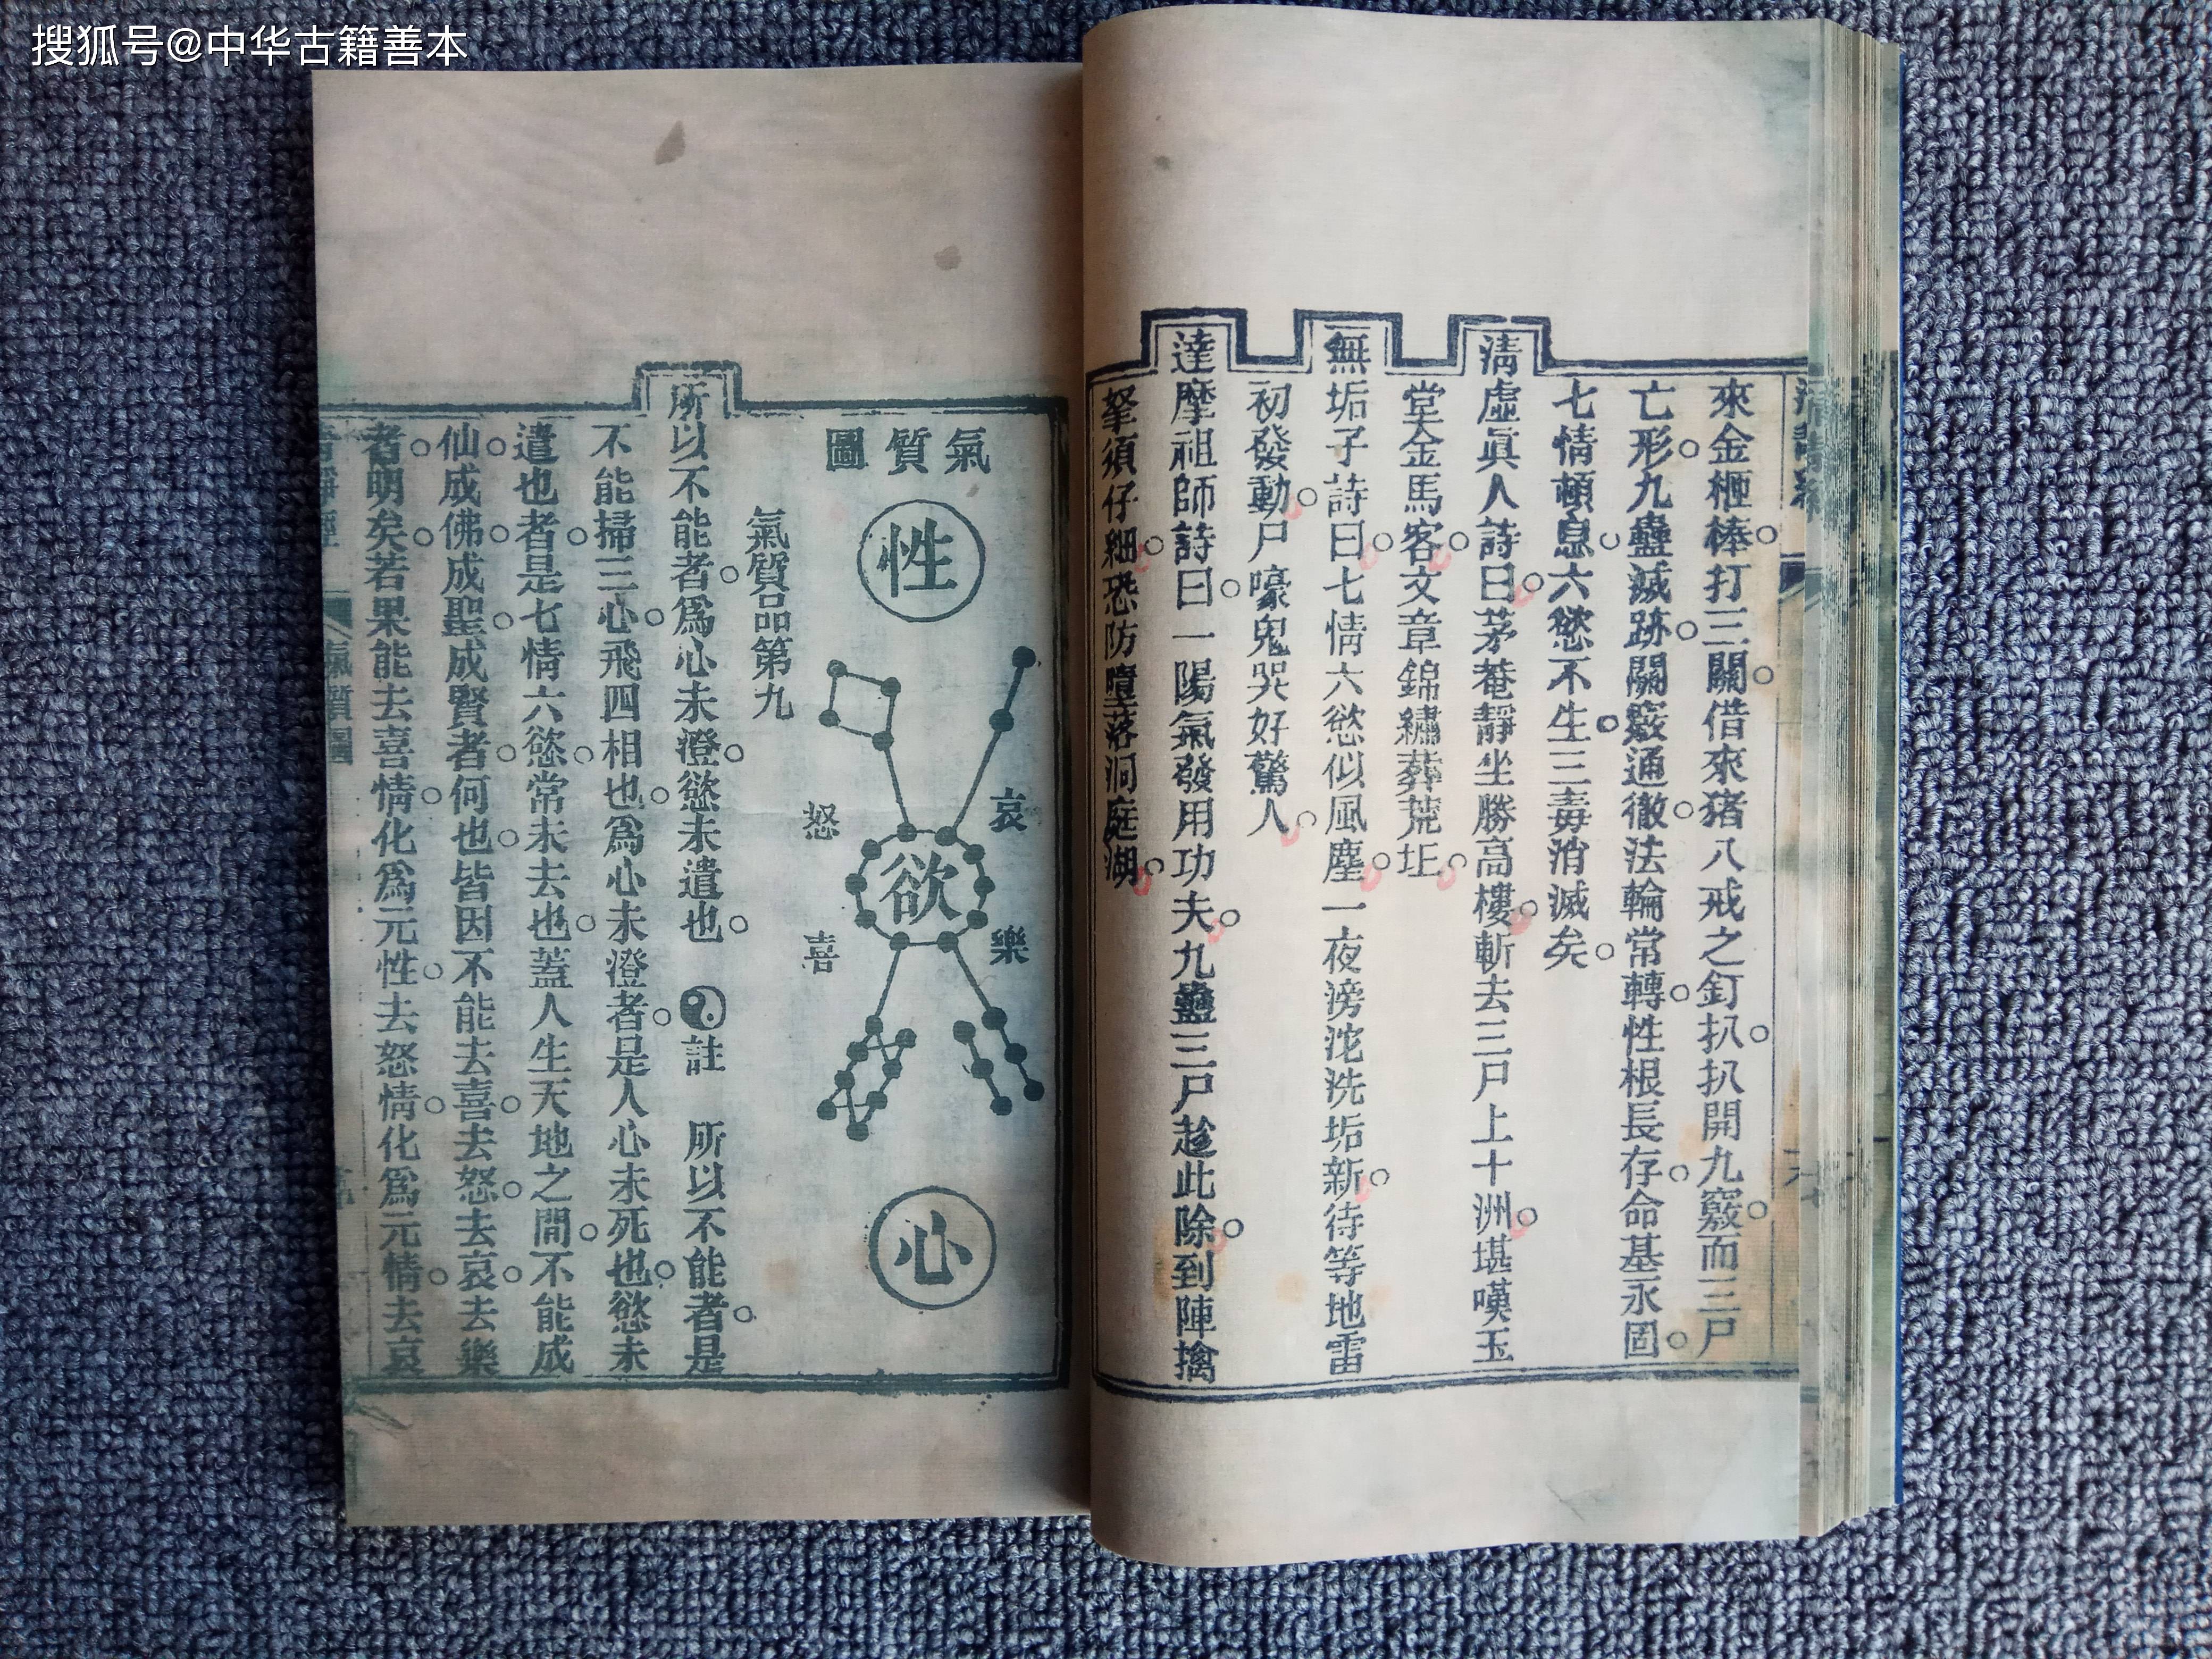 搜狐号@中华古籍善本
來金棰棒打三關借來猪八戒之釘扒扒開九竅而三尸
亡形九蠱滅跡關竅通徹法輪常轉性根長存命基永固
七情頓息六慾不生三毒消滅矣
清虛眞人詩曰茅菴靜坐勝高樓斬去三尸上十洲堪嘆玉
堂金馬客文章錦繡葬荒坵
無垢子詩曰七情六慾似風塵一夜滂沱洗垢新待等地雷
初發動尸嚎鬼哭好驚人
達摩祖師詩曰一陽氣發用功夫九蠱三尸趁此除到陣擒
拏須仔細恐防墮落洞庭湖
氣質圖
性
哀
怒
欲
樂
喜
心
氣質品第九
所以不能者爲心未澄慾未遣也 註 所以不能者是
不能掃三心飛四相也爲心未澄者是人心未死也慾未
遣也者是七情六慾常未去也蓋人生天地之間不能成
仙成佛成聖成賢者何也皆因不能去喜去怒去哀去樂
者明矣若果能去喜情化爲元性去怒情化爲元情去哀
氣質圖